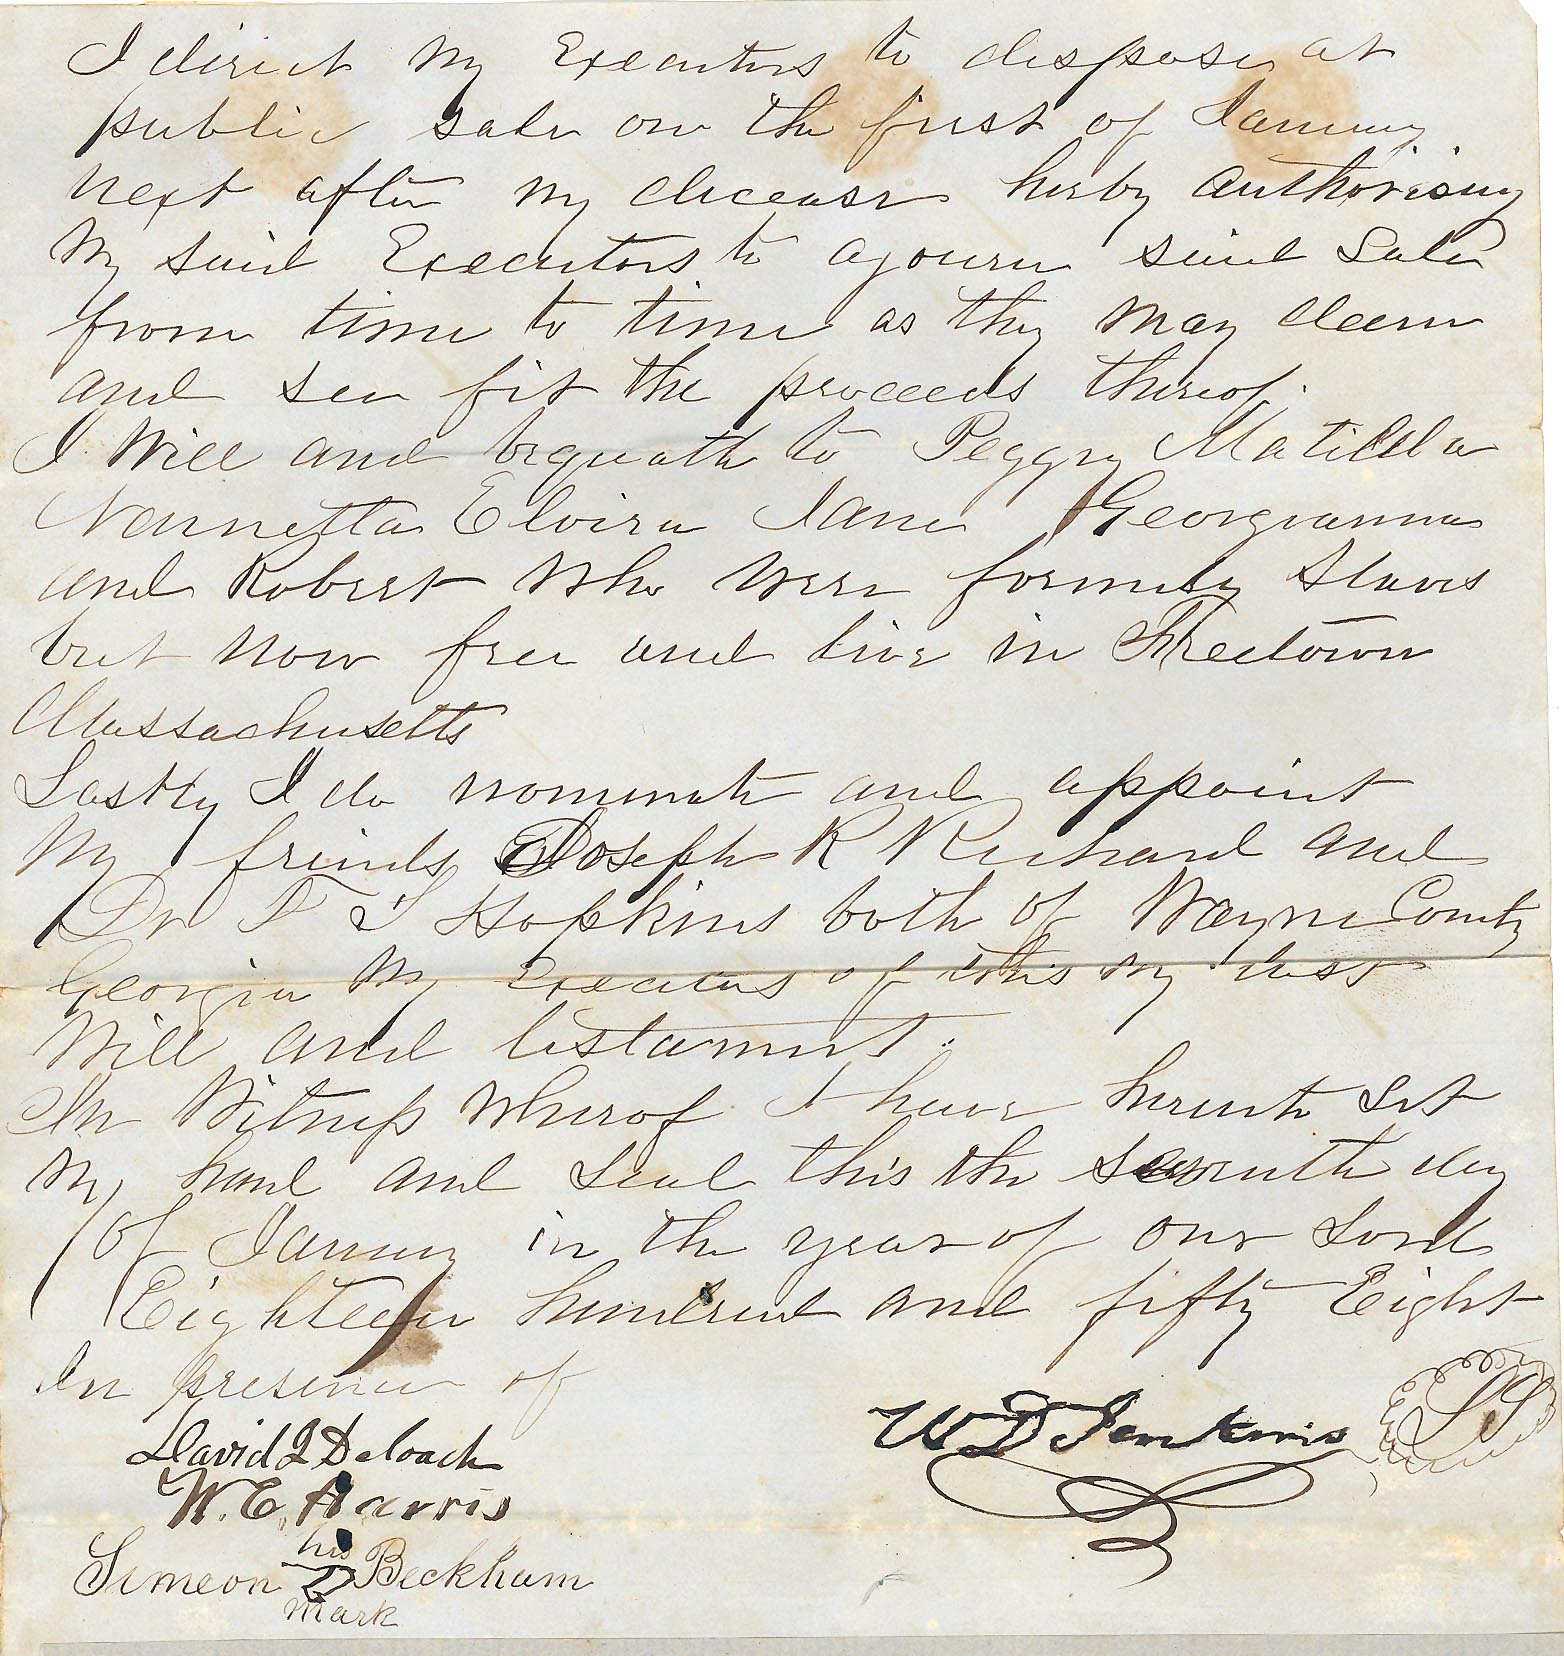 I direct my Executors to dispose at
public sale on the first of January
next after my decease herby authorising
my said Executors to ajourn said Sale
from time to time as they may deem
and see fit the proceeds therof.
I Will and bequeath to Peggy Matilda
Nannetta Elvira Jane Georgianna
and Robert who were formely slaves
but now free and live in Freetown
Massachusetts
Lastly I do nominate and appoint
my friends Joseph R Richard and
Dr F T Hopkins both of Wayne County
Georgia my Executors of this my last
Will and testament.
In Witness Wherof I have hereunto set
my hand and Seal this the seventh day
of January in the year of our Lord
Eighteen hundred and fifty Eight
In presence of
David J Deloach
W D Jenkins LS
W. E. Harris
his
Simeon Beckham
mark